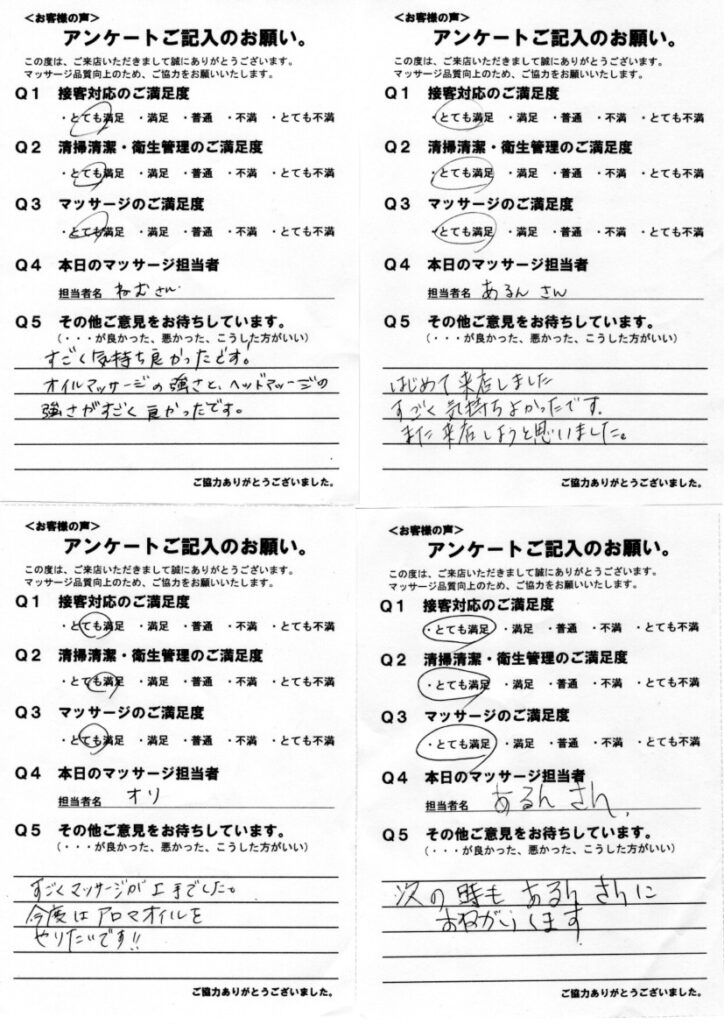 <お客様の声>
アンケートご記入のお願い。
この度は、ご来店いただきまして誠にありがとうございます。
マッサージ品質向上のため、ご協力をお願いいたします。
Q1 接客対応のご満足度
・とても満足 ・満足 ・普通 ・不満 ・とても不満
Q2 清掃清潔・衛生管理のご満足度
・とても満足 ・満足 ・普通 ・不満 ・とても不満
Q3 マッサージのご満足度
・とても満足 ・満足 ・普通 ・不満 ・とても不満
Q4 本日のマッサージ担当者
担当者名 ねむさん
Q5 その他ご意見をお待ちしています。
(・・・が良かった、悪かった、こうした方がいい)
すごく気持ち良かったどす。
オイルマッサージの強さと、ヘッドマッージの
強さがすごく良かったです。
ご協力ありがとうございました。
<お客様の声>
アンケートご記入のお願い。
この度は、ご来店いただきまして誠にありがとうございます。
マッサージ品質向上のため、ご協力をお願いいたします。
Q1 接客対応のご満足度
・とても満足 ・満足 ・普通 ・不満 ・とても不満
Q2 清掃清潔・衛生管理のご満足度
・とても満足 ・満足 ・普通 ・不満 ・とても不満
Q3 マッサージのご満足度
・とても満足 ・満足 ・普通 ・不満 ・とても不満
Q4 本日のマッサージ担当者
担当者名 あるん さん
Q5 その他ご意見をお待ちしています。
(・・・が良かった、悪かった、こうした方がいい)
はじめて来店しました
すごく気持ちよかったです.
また来店しようと思いました。
ご協力ありがとうございました。
<お客様の声>
アンケートご記入のお願い。
この度は、ご来店いただきまして誠にありがとうございます。
マッサージ品質向上のため、ご協力をお願いいたします。
Q1 接客対応のご満足度
・とても満足 ・満足 ・普通 ・不満 ・とても不満
Q2 清掃清潔・衛生管理のご満足度
・とても満足 ・満足 ・普通 ・不満 ・とても不満
Q3 マッサージのご満足度
・とても満足 ・満足 ・普通 ・不満 ・とても不満
Q4 本日のマッサージ担当者
担当者名 オリ
Q5 その他ご意見をお待ちしています。
(・・・が良かった、悪かった、こうした方がいい)
すごくマッサージが上手でした。
今度はアロマオイルを
やりたいです!!
ご協力ありがとうございました。
<お客様の声>
アンケートご記入のお願い。
この度は、ご来店いただきまして誠にありがとうございます。
マッサージ品質向上のため、ご協力をお願いいたします。
Q1 接客対応のご満足度
・とても満足 ・満足 ・普通 ・不満 ・とても不満
Q2 清掃清潔・衛生管理のご満足度
・とても満足 ・満足 ・普通 ・不満 ・とても不満
Q3 マッサージのご満足度
・とても満足 ・満足 ・普通 ・不満 ・とても不満
Q4 本日のマッサージ担当者
担当者名 あるん さん
Q5 その他ご意見をお待ちしています。
(・・・が良かった、悪かった、こうした方がいい)
次の時も あるん さんに
ご協力ありがとうございました。